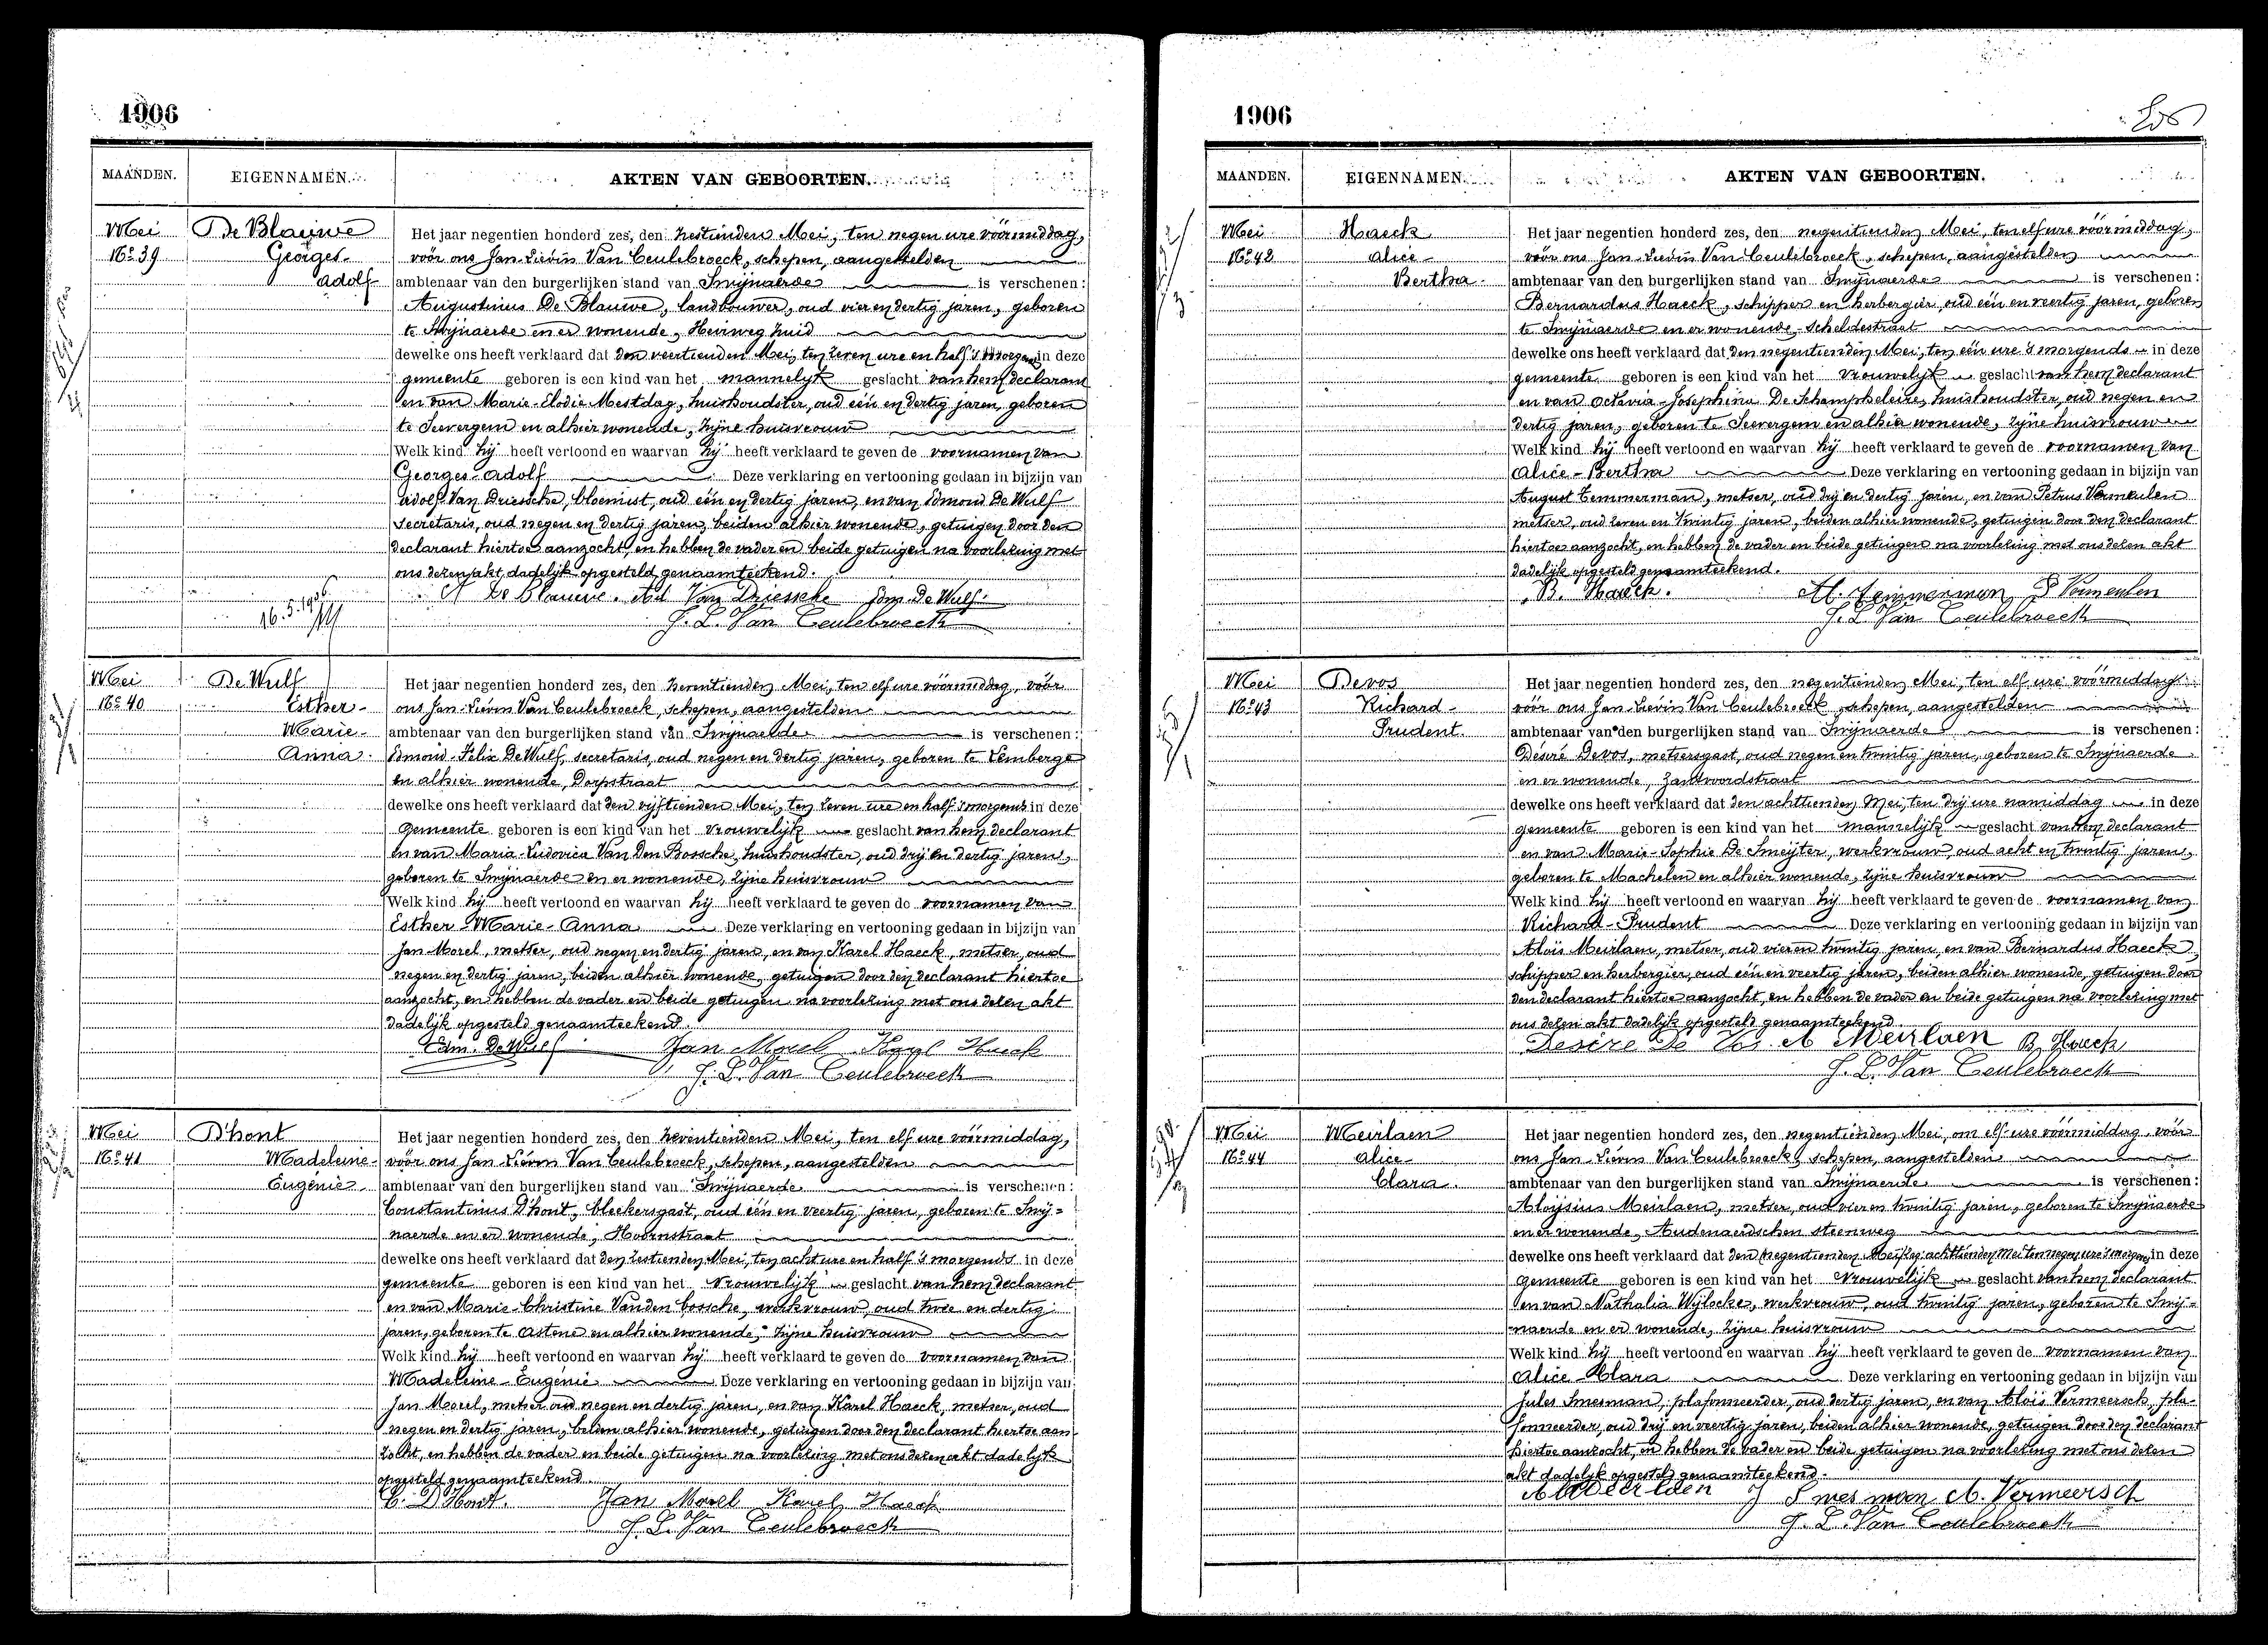 1906
MAANDEN. EIGENNAMEN. AKTEN VAN GEBOORTEN.
Mei
No 39
De Blauwe
Georges-
Adolf
Het jaar negentien honderd zes, den zestienden Mei, ten negen ure vóórmiddag,
vóór ons Jan-Lievin Van Ceulebroeck, schepen, aangestelden
ambtenaar van den burgerlijken stand van Swijnaerde is verschenen:
Augustinus De Blauwe, landbouwer, oud vier en dertig jaren, geboren
te Swijnaerde en er wonende, Heirweg zuid
dewelke ons heeft verklaard dat den veertienden Mei, ten zeven ure en half 's morgens in deze
gemeente geboren is een kind van het mannelijk geslacht van hem declarant
en van Marie-Elodie Mestdag, huishoudster, oud één en dertig jaren, geboren
te Seevergem en alhier wonende, zijne huisvrouw
Welk kind hij heeft vertoond en waarvan hij heeft verklaard te geven de voornamen van
Georges-Adolf Deze verklaring en vertooning gedaan in bijzijn van
Adolf Van Driessche, bloemist, oud één en dertig jaren, en van Edmond De Wulf
secretaris, oud negen en dertig jaren, beiden alhier wonende, getuigen door den
declarant hiertoe aanzocht, en hebben de vader en beide getuigen na voorlezing met
ons dezen akt dadelijk opgesteld genaamteekend.
A De Blauwe. Ad Van Driessche Edm. De Wulf
16.5.1906
J. L. Van Ceulebroeck
Mei
No 40
De Wulf
Esther-
Marie-
Anna
Het jaar negentien honderd zes, den zeventienden Mei, ten elf ure vóórmiddag, vóór
ons Jan-Lievin Van Ceulebroeck, schepen, aangestelden
ambtenaar van den burgerlijken stand van Swijnaerde is verschenen:
Edmond-Felix De Wulf, secretaris, oud negen en dertig jaren, geboren te Lemberge
en alhier wonende, Dorpstraat
dewelke ons heeft verklaard dat den vijftienden Mei, ten zeven ure en half 's morgens in deze
gemeente geboren is een kind van het vrouwelijk geslacht van hem declarant
en van Maria-Ludovica Van Den Bossche, huishoudster, oud drij en dertig jaren,
geboren te Swijnaerde en er wonende, zijne huisvrouw
Welk kind hij heeft vertoond en waarvan hij heeft verklaard te geven de voornamen van
Esther-Marie-Anna Deze verklaring en vertooning gedaan in bijzijn van
Jan Morel, metser, oud negen en dertig jaren, en van Karel Haeck, metser, oud
negen en dertig jaren, beiden alhier wonende, getuigen door den declarant hiertoe
aanzocht, en hebben de vader en beide getuigen na voorlezing met ons dezen akt
dadelijk opgesteld genaamteekend.
Edm. De Wulf Jan Morel Karel Haeck
J. L. Van Ceulebroeck
Mei
No 41
D'hont
Madeleine-
Eugénie
Het jaar negentien honderd zes, den zeventienden Mei, ten elf ure vóórmiddag,
vóór ons Jan-Lievin Van Ceulebroeck, schepen, aangestelden
ambtenaar van den burgerlijken stand van Swijnaerde is verschenen:
Constantinus D'hont, bleekersgast, oud één en veertig jaren, geboren te Swij=
naerde en er wonende, Hoornstraat
dewelke ons heeft verklaard dat den zestienden Mei, ten acht ure en half 's morgends in deze
gemeente geboren is een kind van het vrouwelijk geslacht van hem declarant
en van Marie-Christine Vanden bossche, werkvrouw, oud twee en dertig
jaren, geboren te Astene en alhier wonende, zijne huisvrouw
Welk kind hij heeft vertoond en waarvan hij heeft verklaard te geven de voornamen van
Madeleine-Eugénie Deze verklaring en vertooning gedaan in bijzijn van
Jan Morel, metser, oud negen en dertig jaren, en van Karel Haeck, metser, oud
negen en dertig jaren, beiden alhier wonende, getuigen door den declarant hiertoe aan
zocht, en hebben de vader en beide getuigen na voorlezing met ons dezen akt dadelijk
opgesteld genaamteekend.
C. D'Hont. Jan Morel Karel Haeck
J. L. Van Ceulebroeck
1906
MAANDEN. EIGENNAMEN. AKTEN VAN GEBOORTEN.
Mei
No 42
Haeck
Alice-
Bertha.
Het jaar negentien honderd zes, den negentienden Mei, ten elf ure vóórmiddag,
vóór ons Jan-Lievin Van Ceulebroeck, schepen, aangestelden
ambtenaar van den burgerlijken stand van Swijnaerde is verschenen:
Bernardus Haeck, schipper en herbergier, oud één en veertig jaren, geboren
te Swijnaerde en er wonende, Scheldestraat
dewelke ons heeft verklaard dat den negentienden Mei, ten één ure 's morgends in deze
gemeente geboren is een kind van het vrouwelijk geslacht van hem declarant
en van Octavia-Josephina De Schampheleire, huishoudster, oud negen en
dertig jaren, geboren te Seevergem en alhier wonende, zijne huisvrouw
Welk kind hij heeft vertoond en waarvan hij heeft verklaard te geven de voornamen van
Alice-Bertha Deze verklaring en vertooning gedaan in bijzijn van
August Temmerman, metser, oud drij en dertig jaren, en van Petrus Vermeulen
metser, oud zeven en twintig jaren, beiden alhier wonende, getuigen door den declarant
hiertoe aanzocht, en hebben de vader en beide getuigen na voorlezing met ons dezen akt
dadelijk opgesteld genaamteekend.
B. Haeck. A. Temmerman P Vermeulen
J. L. Van Ceulebroeck
Mei
No 43
Devos
Richard-
Prudent.
Het jaar negentien honderd zes, den negentienden Mei, ten elf ure vóórmiddag
vóór ons Jan-Lievin Van Ceulebroeck, schepen, aangestelden
ambtenaar van den burgerlijken stand van Swijnaerde is verschenen:
Désiré Devos, metsersgast, oud negen en twintig jaren, geboren te Swijnaerde
en er wonende, Zandvoordstraat
dewelke ons heeft verklaard dat den achttienden Mei, ten drij ure namiddag in deze
gemeente geboren is een kind van het mannelijk geslacht van hem declarant
en van Marie-Sophie De Smeijter, werkvrouw, oud acht en twintig jaren,
geboren te Machelen en alhier wonende, zijne huisvrouw
Welk kind hij heeft vertoond en waarvan hij heeft verklaard te geven de voornamen van
Richard-Prudent Deze verklaring en vertooning gedaan in bijzijn van
Aloïs Meirlaen, metser, oud vier en twintig jaren, en van Bernardus Haeck,
schipper en herbergier, oud één en veertig jaren, beiden alhier wonende, getuigen door
den declarant hiertoe aanzocht, en hebben de vader en beide getuigen na voorlezing met
ons dezen akt dadelijk opgesteld genaamteekend.
Desire De Vos A Meirlaen B. Haeck
J. L. Van Ceulebroeck
Mei
No 44
Meirlaen
Alice-
Clara.
Het jaar negentien honderd zes, den negentienden Mei, om elf ure vóórmiddag, vóór
ons Jan-Lievin Van Ceulebroeck, schepen, aangestelden
ambtenaar van den burgerlijken stand van Swijnaerde is verschenen:
Aloijsius Meirlaen, metser, oud vier en twintig jaren, geboren te Swijnaerde
en er wonende, Audenaerdschen steenweg
dewelke ons heeft verklaard dat den negentienden Mei achttienden Mei ten negen ure 's morgens in deze
gemeente geboren is een kind van het vrouwelijk geslacht van hem declarant
en van Nathalia Wijlocke, werkvrouw, oud twintig jaren, geboren te Swij=
naerde en er wonende, zijne huisvrouw
Welk kind hij heeft vertoond en waarvan hij heeft verklaard te geven de voornamen van
Alice-Clara Deze verklaring en vertooning gedaan in bijzijn van
Jules Smesman, plafonneerder, oud dertig jaren, en van Aloïs Vermeersch, pla-
fonneerder, oud drij en veertig jaren, beiden alhier wonende, getuigen door den declarant
hiertoe aanzocht, en hebben de vader en beide getuigen na voorlezing met ons dezen
akt dadelijk opgesteld genaamteekend.
A Meirlaen J Smesman A. Vermeersch
J. L. Van Ceulebroeck